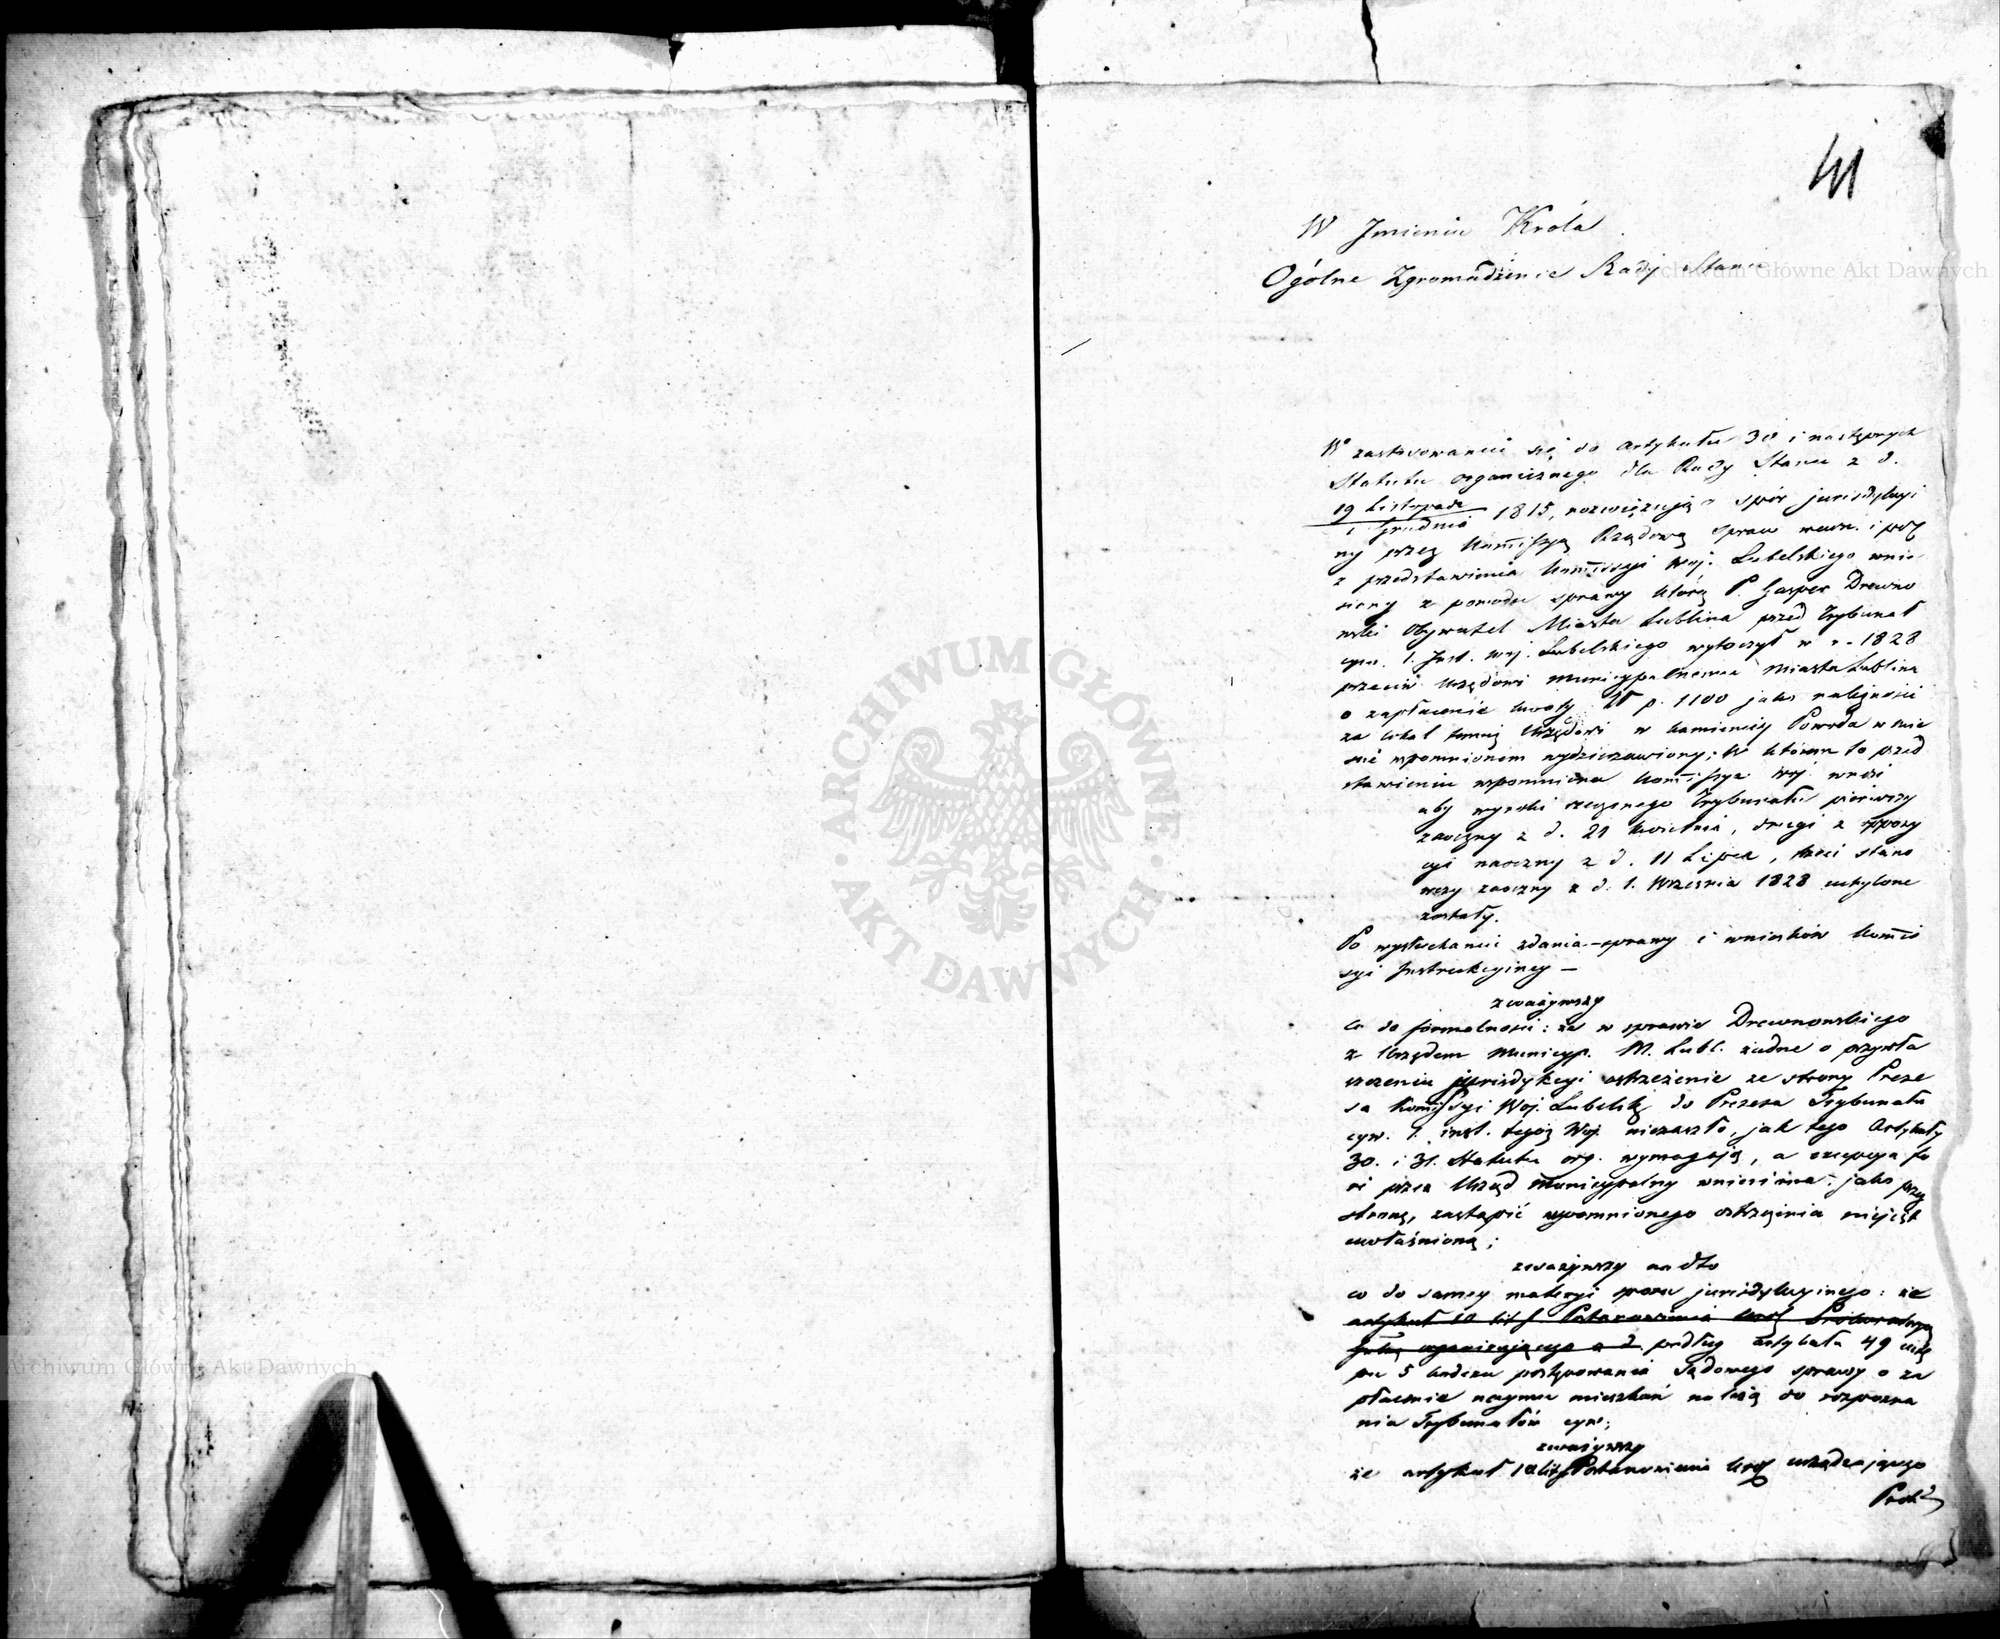 41
W Jmieniu Króla
Ogólne Zgromadzenie Rady Stanu
W zastosowaniu się do Artykułu 30 i następnych
Statutu organicznego dla Rady Stanu z d.
19 Listopada
1 Grudnia 1815, rozwiązując spór jurisdykcyi
ny przez Kommissyą Rządową Spraw wewn. i pol
z przedstawienia Kommissyi Woj. Lubelskiego wnie
siony z powodu sprawy którą P. Gasper Drewno
wski Obywatel Miasta Lublina przed Trybunał
cyw. 1. Inst. Woj. Lubelskiego wytoczył w r. 1828
przeciw Urzędowi Municypalnemu Miasta Lublina
o zapłacenie kwoty Zł p. 1100 jako należności
za lokal temuż Urzędowi w kamienicy Powoda w mie
ście wspomnionem wydzierżawiony; W którem to przed
stawieniu wspomniona Kommissya Woj. wnosi
aby wyroki rzeczonego Trybunału pierwszy
zaoczny z d. 21 Kwietnia, drugi z oppozy
cyi naoczny z d. 11 Lipca, trzeci stano
wczy zaoczny z d. 1. Września 1828 uchylone
zostały.
Po wysłuchaniu zdania-sprawy i wniosków Kommis
syi Instrukcyiney —
zważywszy
co do formalności: że w sprawie Drewnowskiego
z Urzędem Municyp. M. Lubl. żadne o przywła
szczeniu jurisdykcyi ostrzeżenie ze strony Preze
sa Kommissyi Woj. Lubelsk. do Prezesa Trybunału
cyw. 1. inst. tegoż Woj. niezaszło, jak tego Artykuły
30. i 31. Statutu org. wymagają, a excepcya fo
ri przez Urząd Municypalny wniesiona, jako przez
stronę, zastąpić wspomnionego ostrzeżenia niejest
uwłaśnioną;
zważywszy nadto
co do samey materyi sporu jurisdykcyinego: że
artykuł 10 lit f Postanowienia Król Prokuratoryą
podług Artykułu 49 ustę
pu 5 kodexu postępowania Sądowego sprawy o za
płacenie najmu mieszkań należą do rozpozna
nia Trybunałów cyw;
zważywszy
że artykuł 10 lit f Postanowienia Król urządzającego
Prok